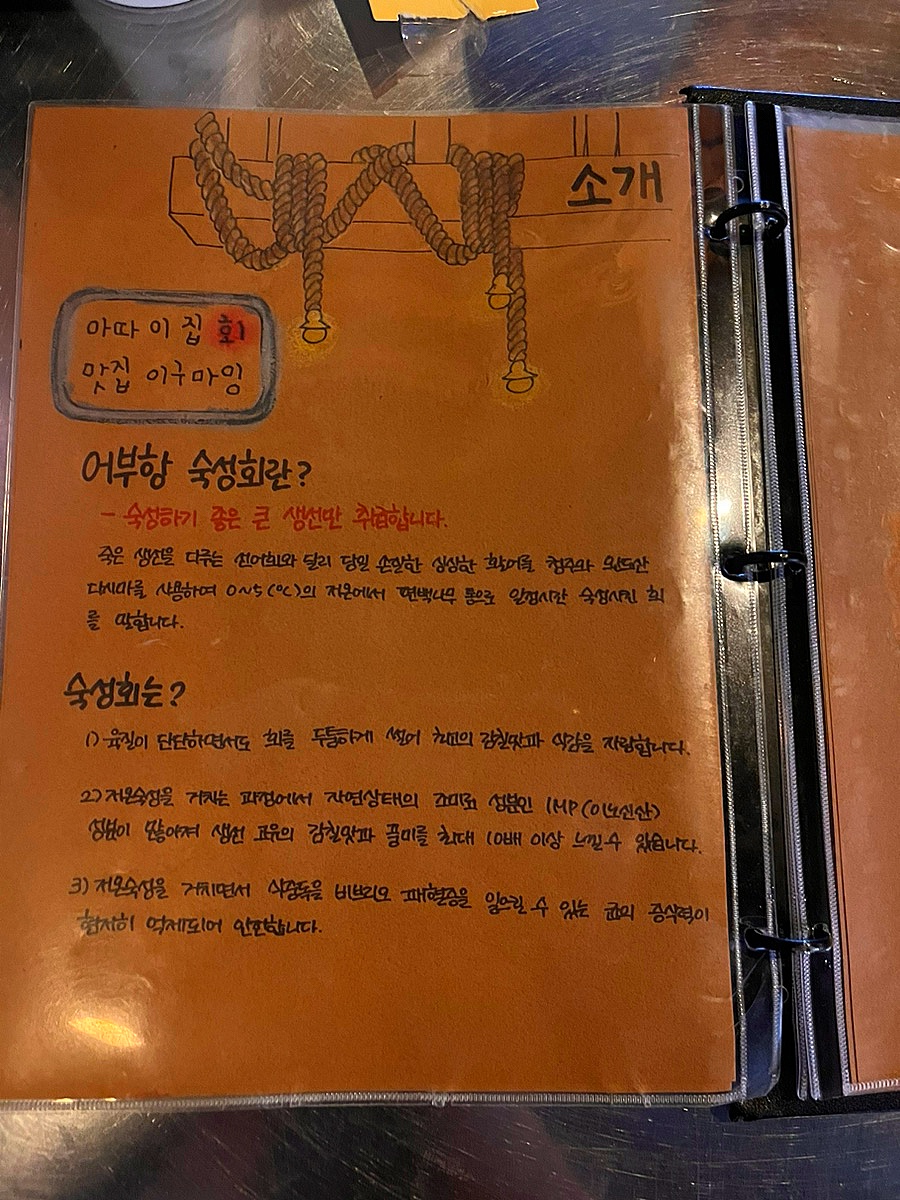 소개
아따 이 집 회
맛집 이구마잉
어부항 숙성회란?
- 숙성하기 좋은 큰 생선만 취급합니다.
죽은 생선을 다루는 선어회와 달리 당일 손질한 싱싱한 활어를 청주와 완도산
다시마를 사용하여 0~5(℃)의 저온에서 편백나무 통으로 일정시간 숙성시킨 회
를 말합니다.
숙성회는?
1) 육질이 단단하면서도 회를 두툼하게 썰어 최고의 감칠맛과 식감을 자랑합니다.
2) 저온숙성을 거치는 과정에서 자연상태의 조미료 성분인 IMP(이노신산)
성분이 많아져 생선 고유의 감칠맛과 풍미를 최대 10배 이상 느낄 수 있습니다.
3) 저온숙성을 거치면서 식중독을 비브리오 패혈증을 일으킬 수 있는 균의 증식력이
현저히 억제되어 안전합니다.